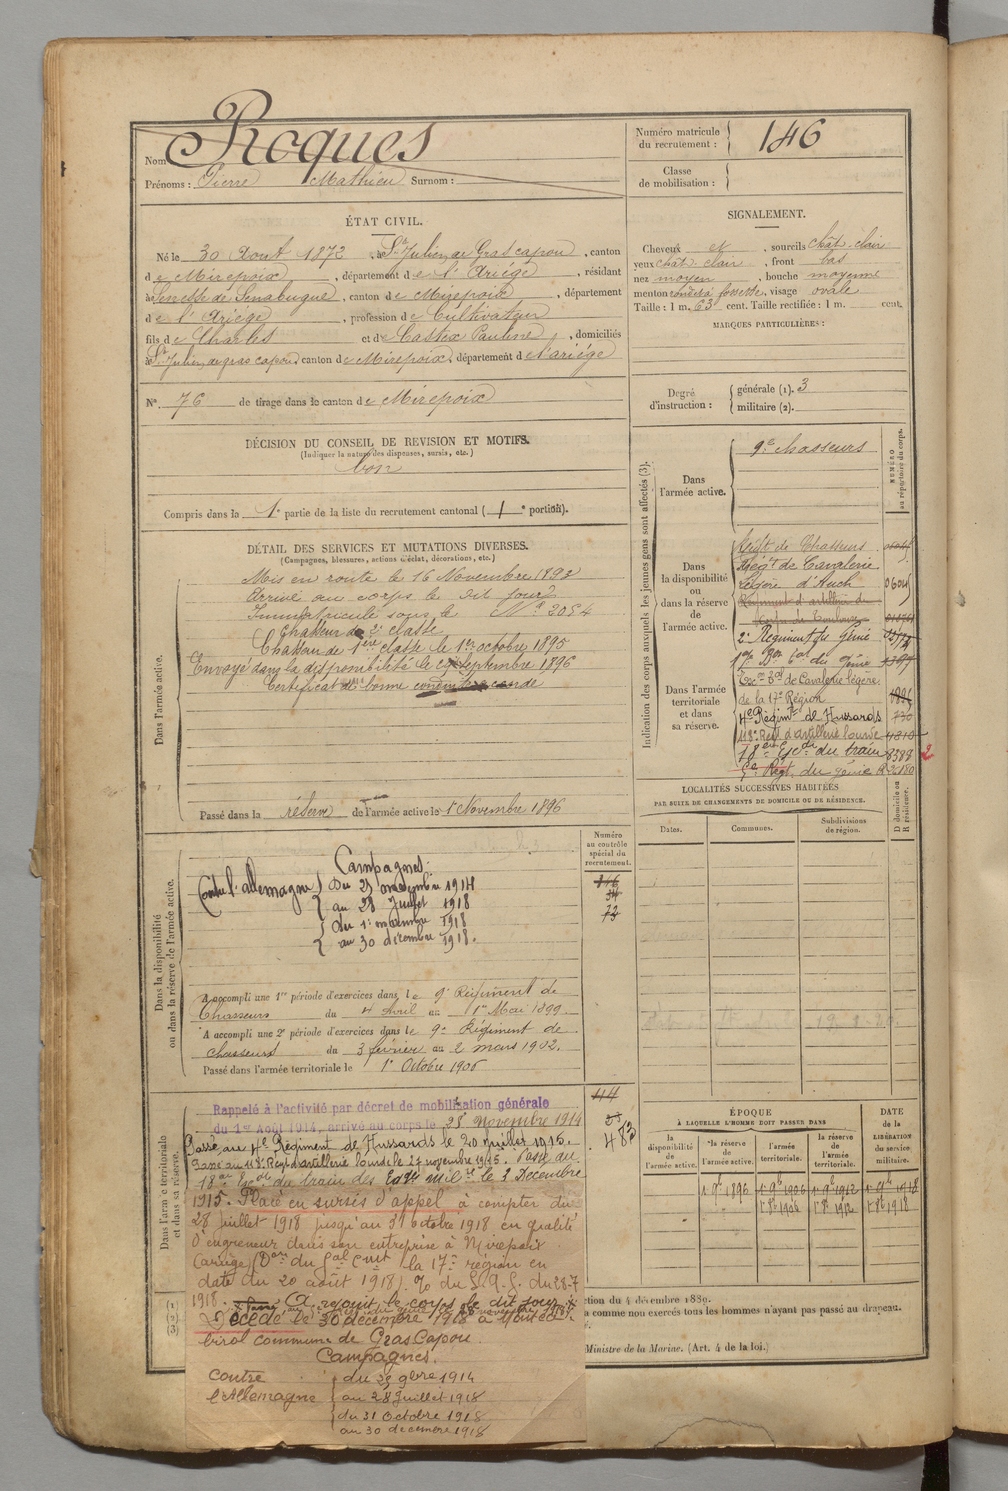 Nom Roques
Prénoms : Pierre Mathieu Surnom :
Numéro matricule du recrutement : 146
Classe de mobilisation :
ÉTAT CIVIL.
Né le 30 Aout 1872, à St Julien de Gras capou, canton
de Mirepoix, département de l'Ariège, résidant
à Senesse de Senabugue, canton de Mirepoix, département
de l'Ariège, profession de Cultivateur
fils de Charles et de Castex Pauline, domiciliés
à St Julien de gras capou, canton de Mirepoix, département de l'ariége
No 76 de tirage dans le canton de Mirepoix
SIGNALEMENT.
Cheveux et, sourcils chât. clair
yeux chât. clair, front bas
nez moyen, bouche moyenne
menton rond à fossette, visage ovale
Taille : 1 m. 63 cent. Taille rectifiée : 1 m. cent.
MARQUES PARTICULIÈRES :
Degré d'instruction : générale (1). 3
militaire (2).
DÉCISION DU CONSEIL DE REVISION ET MOTIFS.
(Indiquer la nature des dispenses, sursis, etc.)
bon
Compris dans la 1e partie de la liste du recrutement cantonal (1e portion).
DÉTAIL DES SERVICES ET MUTATIONS DIVERSES.
(Campagnes, blessures, actions d'éclat, décorations, etc.)
Dans l'armée active.
Mis en route le 16 Novembre 1893
Arrivé au corps le dit jour
Immatriculé sous le No 2054
Chasseur de 2e classe
Chasseur de 1ère classe le 1er octobre 1895
Envoyé dans la disponibilité le septembre 1896
Certificat de bonne conduite
Passé dans la réserve de l'armée active le 1 Novembre 1896
Indication des corps auxquels les jeunes gens sont affectés (3).
NUMÉRO au répertoire du corps.
Dans l'armée active.
9e chasseurs
Dans la disponibilité ou dans la réserve de l'armée active.
Régt de Chasseurs
Régt de Cavalerie
Légère d'Auch
Régiment d'artillerie de
2e Régiment du Génie
17e Bon du Génie
Dans l'armée territoriale et dans sa réserve.
de Cavalerie légère
de la 17e Région
4e Régimt de Hussards 730
118e Régt d'artillerie lourde
18e Escon du train 8388 2
Régt du génie
LOCALITÉS SUCCESSIVES HABITÉES
PAR SUITE DE CHANGEMENTS DE DOMICILE OU DE RÉSIDENCE.
Dates. Communes. Subdivisions de région. D domicile ou R résidence.
Numéro au contrôle spécial du recrutement.
Dans la disponibilité ou dans la réserve de l'armée active.
Campagnes:
Contre l'allemagne du 25 novembre 1914
au 28 Juillet 1918
du 1er novembre 1918
au 30 décembre 1918.
A accompli une 1re période d'exercices dans le 9e Régiment de
Chasseurs du 4 Avril au 1er Mai 1899
A accompli une 2e période d'exercices dans le 9e Régiment de
chasseurs du 3 février au 2 mars 1902.
Passé dans l'armée territoriale le 1er Octobre 1906
Dans l'armée territoriale et dans sa réserve.
Rappelé à l'activité par décret de mobilisation générale
du 1er Août 1914, arrivé au corps le 25 novembre 1914
Passé au 4e Régiment de Hussards le 20 juillet 1915.
Passé au 118e Régt d'artillerie lourde le 27 novembre 1915. Passé au
18e Escon du train des Eqges milres le 3 Décembre
1915. Placé en sursis d'appel à compter du
28 juillet 1918 jusqu'au 31 octobre 1918 en qualité
d'engreneur dans son entreprise à Mirepoix
(ariège) (Don du Gal Cmt la 17e région en
date du 20 août 1918) du 28-7
1918. A rejoint le corps le dit jour
Décédé le 30 décembre 1918 à
birol commune de Gras Capou.
Campagnes.
Contre l'Allemagne du 25 9bre 1914
au 28 Juillet 1918
du 31 Octobre 1918
au 30 décembre 1918
114
483
ÉPOQUE
À LAQUELLE L'HOMME DOIT PASSER DANS
la disponibilité de l'armée active. la réserve de l'armée active. l'armée territoriale. la réserve de l'armée territoriale.
DATE DE LA LIBÉRATION du service militaire.
1er 9b 1896 1er 9b 1906 1er 9b 1912 1er 9b 1918
1er 8b 1906 1er 8b 1912 1er 8b 1918
(1)
(2)
(3)
ction du 4 décembre 1889.
a comme non exercés tous les hommes n'ayant pas passé au drapeau.
Ministre de la Marine. (Art. 4 de la loi.)